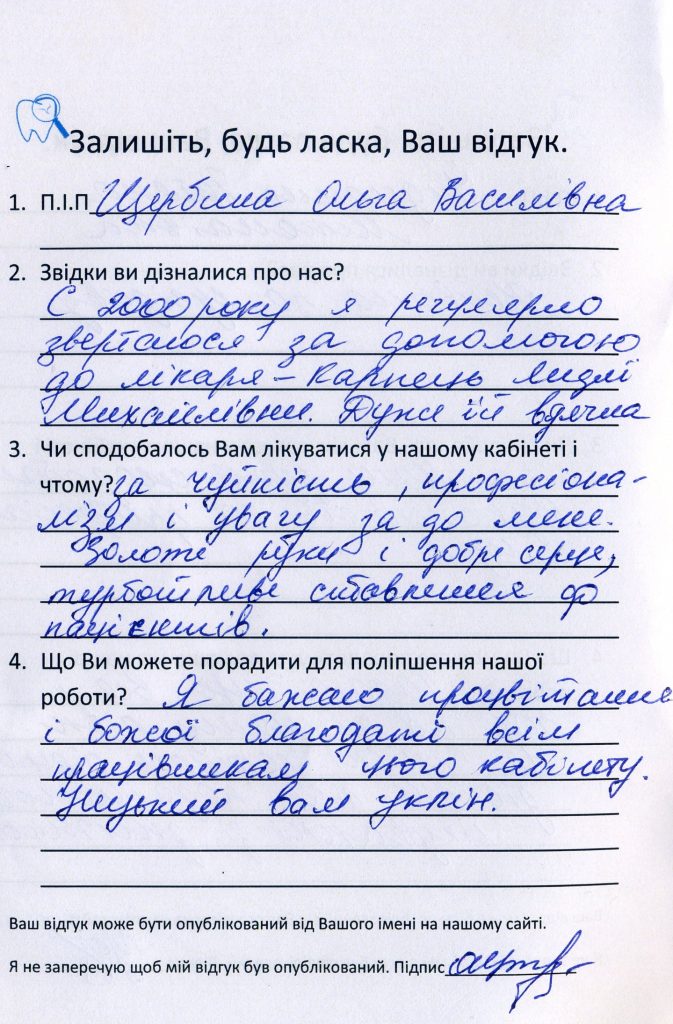 Залишіть, будь ласка, Ваш відгук.
1. П.І.П Щербина Ольга Василівна
2. Звідки ви дізналися про нас?
С 2000 року я регулярно
зверталася за допомогою
до лікаря – Карпець Лидії
Михайлівни. Дуже їй вдячна
3. Чи сподобалось Вам лікуватися у нашому кабінеті і
чтому? за чуйкість, професіона-
лізм і увагу за до мене.
Золоті руки і добре серце,
турботливе ставлення до
пацієнтів.
4. Що Ви можете порадити для поліпшення нашої
роботи? Я бажаю процвітання
і божої благодаті всім
працівникам цього кабінету.
Низький вам уклін.
Ваш відгук може бути опублікований від Вашого імені на нашому сайті.
Я не заперечую щоб мій відгук був опублікований. Підпис